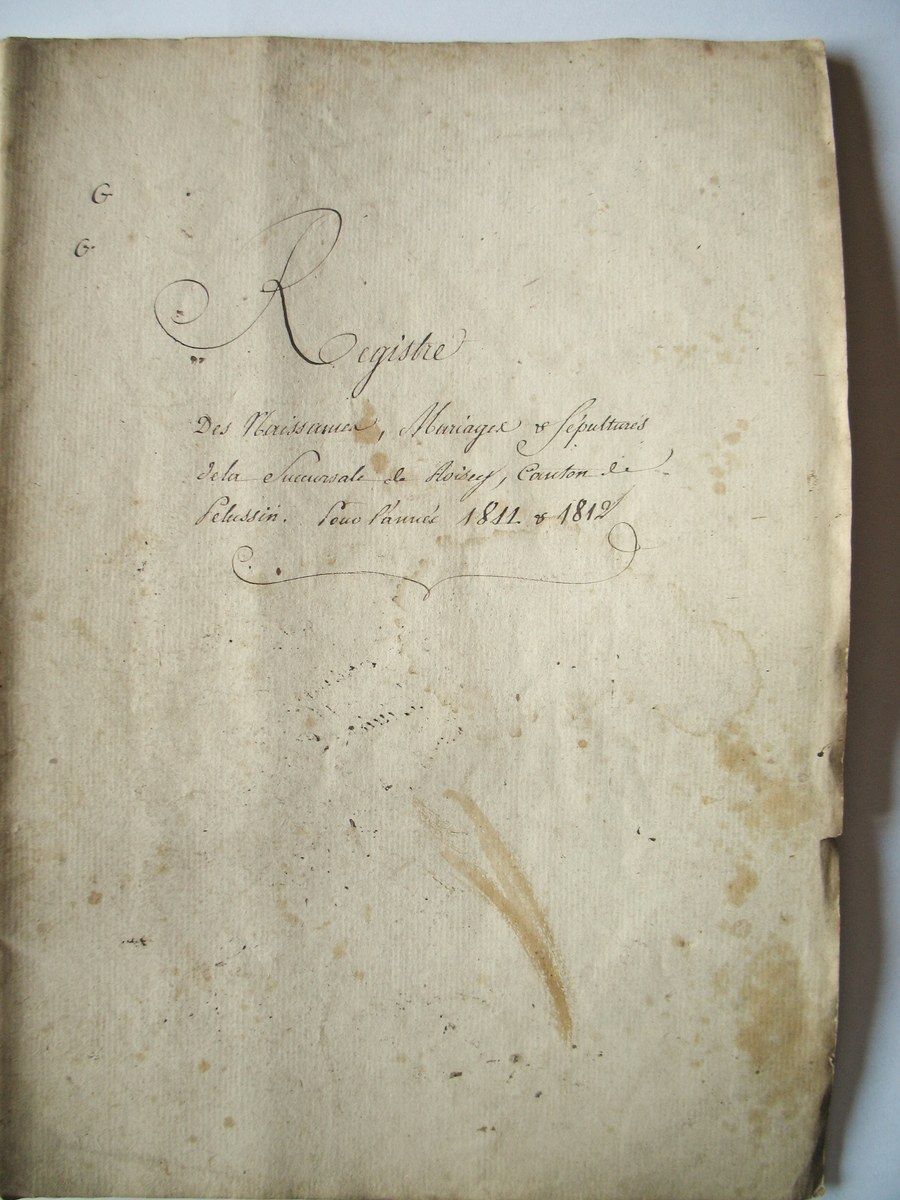 G
G
Registre
Des Naissances, Mariages & Sépultures
de la Succursale de Roisey, Canton de
Pelussin. Pour l'année 1811 & 1812